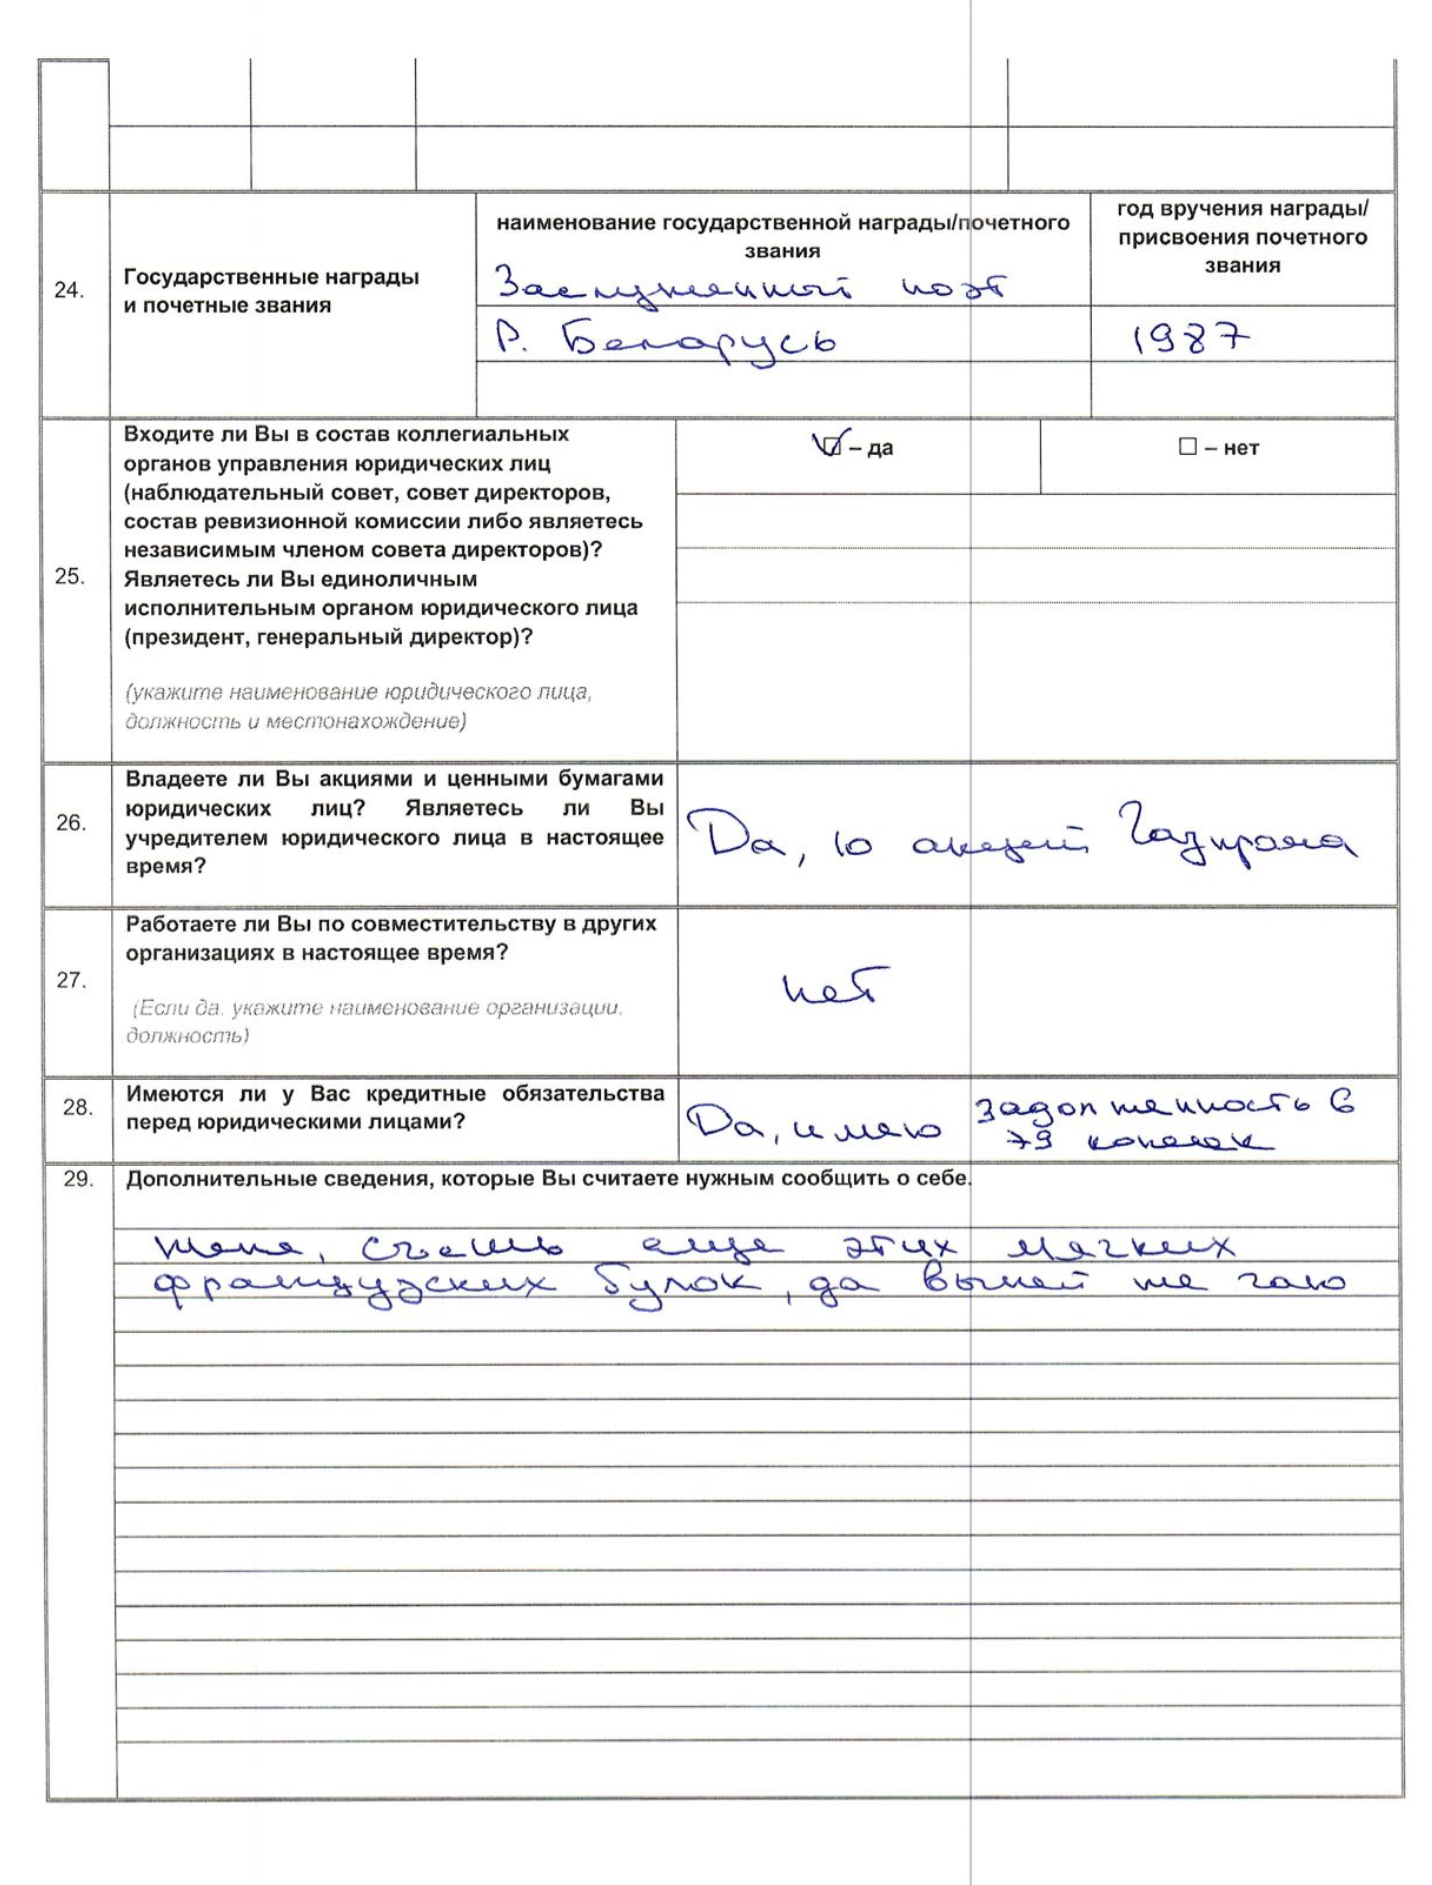 24.
Государственные награды
и почетные звания
наименование государственной награды/почетного
звания
год вручения награды/
присвоения почетного
звания
Заслуженный поэт
Р. Беларусь
1987
25.
Входите ли Вы в состав коллегиальных
органов управления юридических лиц
(наблюдательный совет, совет директоров,
состав ревизионной комиссии либо являетесь
независимым членом совета директоров)?
Являетесь ли Вы единоличным
исполнительным органом юридического лица
(президент, генеральный директор)?
(укажите наименование юридического лица,
должность и местонахождение)
☑ – да
☐ – нет
26.
Владеете ли Вы акциями и ценными бумагами
юридических лиц? Являетесь ли Вы
учредителем юридического лица в настоящее
время?
Да, 10 акций Газпрома
27.
Работаете ли Вы по совместительству в других
организациях в настоящее время?
(Если да, укажите наименование организации,
должность)
нет
28.
Имеются ли у Вас кредитные обязательства
перед юридическими лицами?
Да, имею задолженность в
79 копеек
29.
Дополнительные сведения, которые Вы считаете нужным сообщить о себе.
съешь еще этих мягких
французских булок, да выпей же чаю